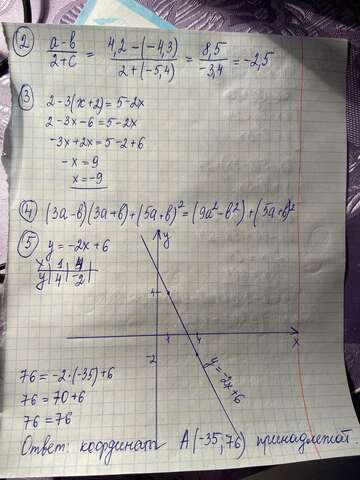 ② (a-в)/(2+c) = (4,2-(-4,3))/(2+(-5,4)) = 8,5/-3,4 = -2,5
③
2-3(x+2)=5-2x
2-3x-6=5-2x
-3x+2x=5-2+6
-x=9
x=-9
④ (3a-в)(3a+в)+(5a+в)² = (9a²-в²)+(5a+в)²
⑤ y=-2x+6
x | 1 | 4
y | 4 | -2
y
4
1 4
x
-2
y=-2x+6
76=-2·(-35)+6
76=70+6
76=76
Ответ: координаты A(-35,76) принадлежат.